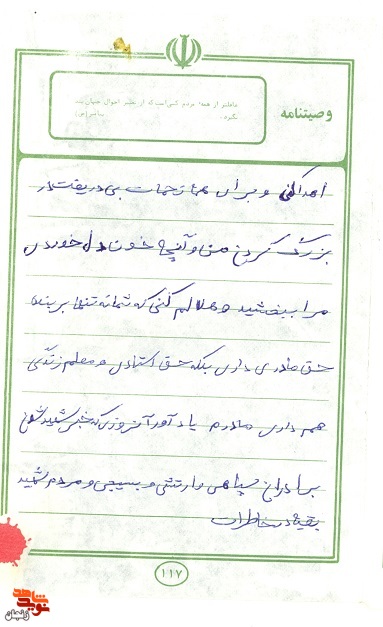 وصیتنامه
عاقلتر از همه مردم کسی است که از تغییر احوال جهان پند
بگیرد.
اهدا کنی و برای همه زحمات بی دریغت در
بزرگ کردن من و آنچه خون دل خوردی
مرا ببخشید و حلالم کنی که شما نه تنها بر بنده
حق مادری داری بلکه حق استادی و معلم زندگی
هم داری مادرم یاد آور آنروزی که خبر شهید شدن
برادران سپاهی و ارتشی و بسیجی و مردم شهید
بقیه در خاطرات
۱۱۷
نوید شاهد